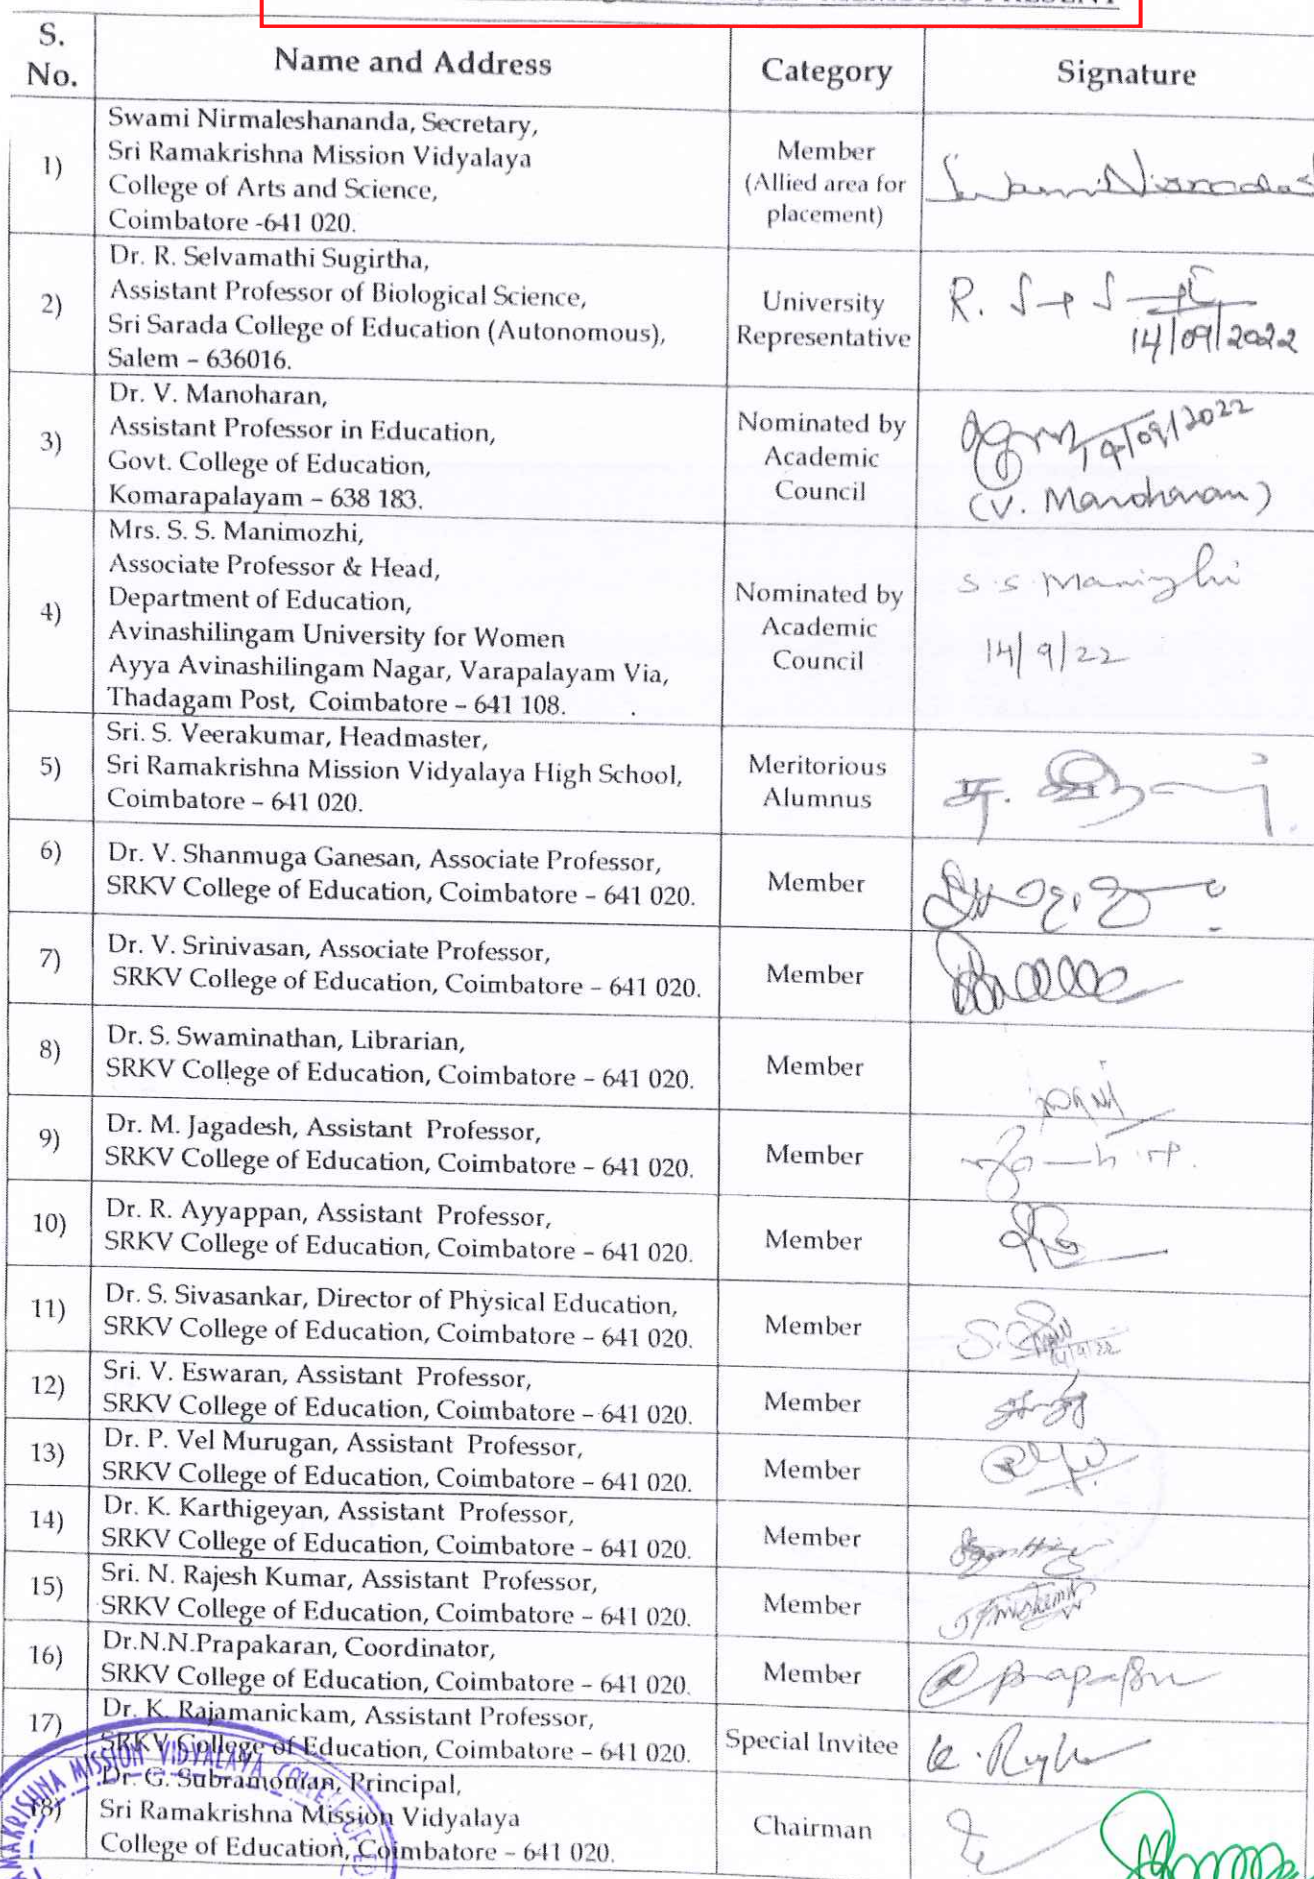 MEMBERS PRESENT
S. No.
Name and Address
Category
Signature
1)
Swami Nirmaleshananda, Secretary,
Sri Ramakrishna Mission Vidyalaya
College of Arts and Science,
Coimbatore -641 020.
Member
(Allied area for
placement)
2)
Dr. R. Selvamathi Sugirtha,
Assistant Professor of Biological Science,
Sri Sarada College of Education (Autonomous),
Salem – 636016.
University
Representative
14/09/2022
3)
Dr. V. Manoharan,
Assistant Professor in Education,
Govt. College of Education,
Komarapalayam – 638 183.
Nominated by
Academic
Council
14/09/2022
(V. Manoharan)
4)
Mrs. S. S. Manimozhi,
Associate Professor & Head,
Department of Education,
Avinashilingam University for Women
Ayya Avinashilingam Nagar, Varapalayam Via,
Thadagam Post, Coimbatore – 641 108.
Nominated by
Academic
Council
14/9/22
5)
Sri. S. Veerakumar, Headmaster,
Sri Ramakrishna Mission Vidyalaya High School,
Coimbatore – 641 020.
Meritorious
Alumnus
6)
Dr. V. Shanmuga Ganesan, Associate Professor,
SRKV College of Education, Coimbatore – 641 020.
Member
7)
Dr. V. Srinivasan, Associate Professor,
SRKV College of Education, Coimbatore – 641 020.
Member
8)
Dr. S. Swaminathan, Librarian,
SRKV College of Education, Coimbatore – 641 020.
Member
9)
Dr. M. Jagadesh, Assistant Professor,
SRKV College of Education, Coimbatore – 641 020.
Member
10)
Dr. R. Ayyappan, Assistant Professor,
SRKV College of Education, Coimbatore – 641 020.
Member
11)
Dr. S. Sivasankar, Director of Physical Education,
SRKV College of Education, Coimbatore – 641 020.
Member
12)
Sri. V. Eswaran, Assistant Professor,
SRKV College of Education, Coimbatore – 641 020.
Member
13)
Dr. P. Vel Murugan, Assistant Professor,
SRKV College of Education, Coimbatore – 641 020.
Member
14)
Dr. K. Karthigeyan, Assistant Professor,
SRKV College of Education, Coimbatore – 641 020.
Member
15)
Sri. N. Rajesh Kumar, Assistant Professor,
SRKV College of Education, Coimbatore – 641 020.
Member
16)
Dr.N.N.Prapakaran, Coordinator,
SRKV College of Education, Coimbatore – 641 020.
Member
17)
Dr. K. Rajamanickam, Assistant Professor,
SRKV College of Education, Coimbatore – 641 020.
Special Invitee
18)
Dr. G. Subramonian, Principal,
Sri Ramakrishna Mission Vidyalaya
College of Education, Coimbatore – 641 020.
Chairman
MISSION VIDYALAYA